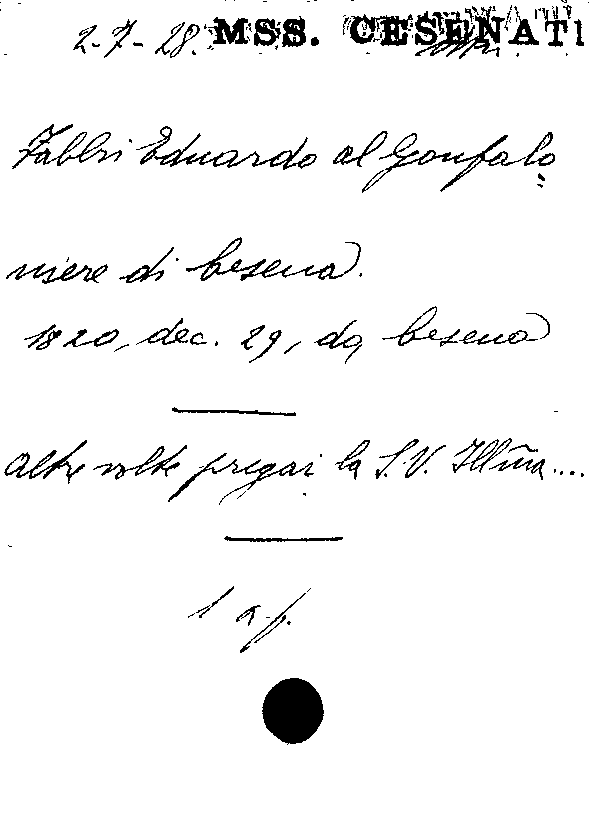 2-7-28. MSS. CESENATI
Fabbri Eduardo al Gonfalo=
niere di Cesena.
1820, dec. 29, da Cesena
Altre volte pregai la S. V. Ill̃ma....
1 a-p.